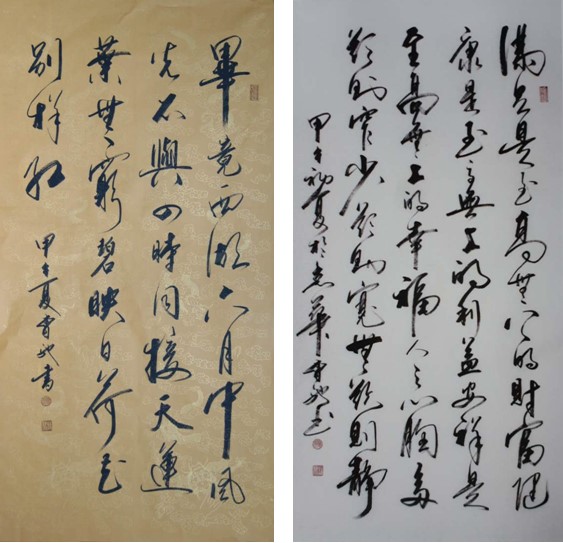 畢竟西湖六月中風
光不與四時同接天蓮
葉無窮碧映日荷花
別樣紅
甲午夏曹書
滿足是至高無上的財富健
康是至高無上的利益安祥是
至高無上的幸福人之心胸多
欲則窄少欲則寬無欲則靜
甲午初夏於京華曹書